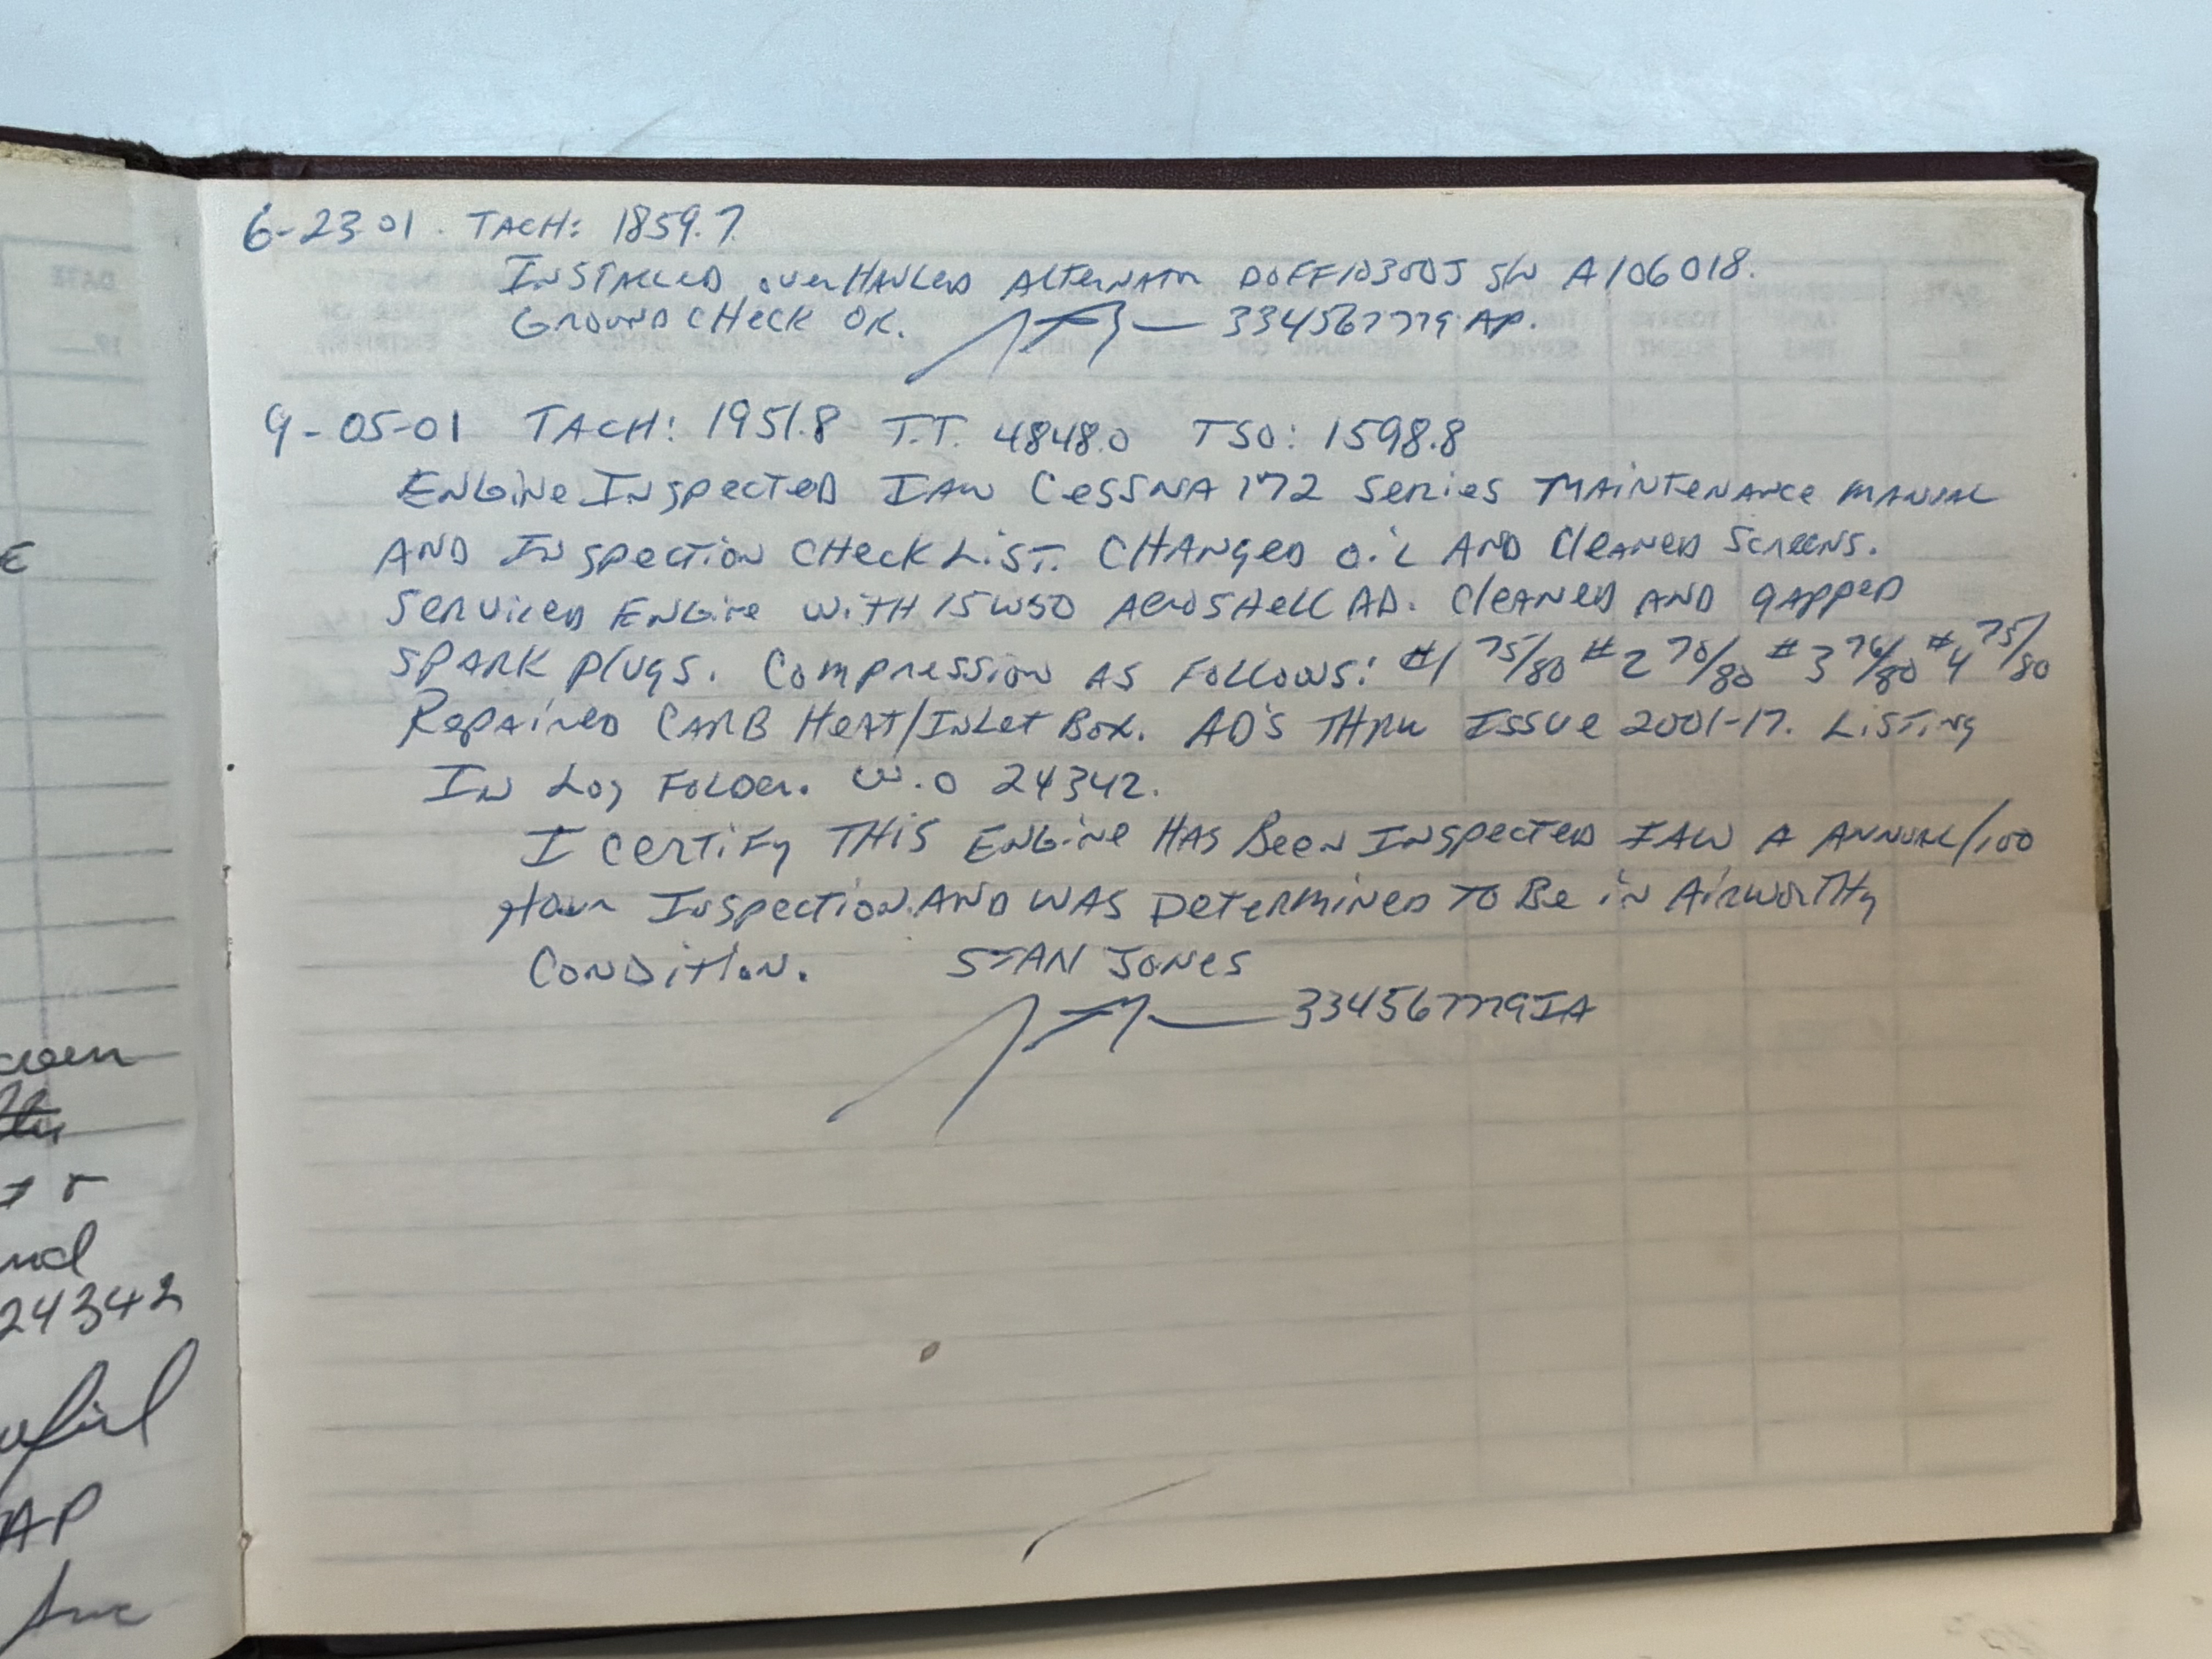 6-23-01. TACH: 1859.7
INSTALLED OVERHAULED ALTERNATOR DOFF10300J S/N A106018.
GROUND CHECK OK. 334567779 AP.
9-05-01 TACH: 1951.8 T.T. 4848.0 TSO: 1598.8
ENGINE INSPECTED IAW CESSNA 172 SERIES MAINTENANCE MANUAL
AND INSPECTION CHECK LIST. CHANGED OIL AND CLEANED SCREENS.
SERVICED ENGINE WITH 15W50 AEROSHELL AD. CLEANED AND GAPPED
SPARK PLUGS. COMPRESSION AS FOLLOWS: #1 75/80 #2 70/80 #3 76/80 #4 75/80
REPAIRED CARB HEAT/INLET BOX. AD'S THRU ISSUE 2001-17. LISTING
IN LOG FOLDER. W.O 24342.
I CERTIFY THIS ENGINE HAS BEEN INSPECTED IAW A ANNUAL/100
HOUR INSPECTION AND WAS DETERMINED TO BE IN AIRWORTHY
CONDITION. STAN JONES
334567779IA
24342
AP